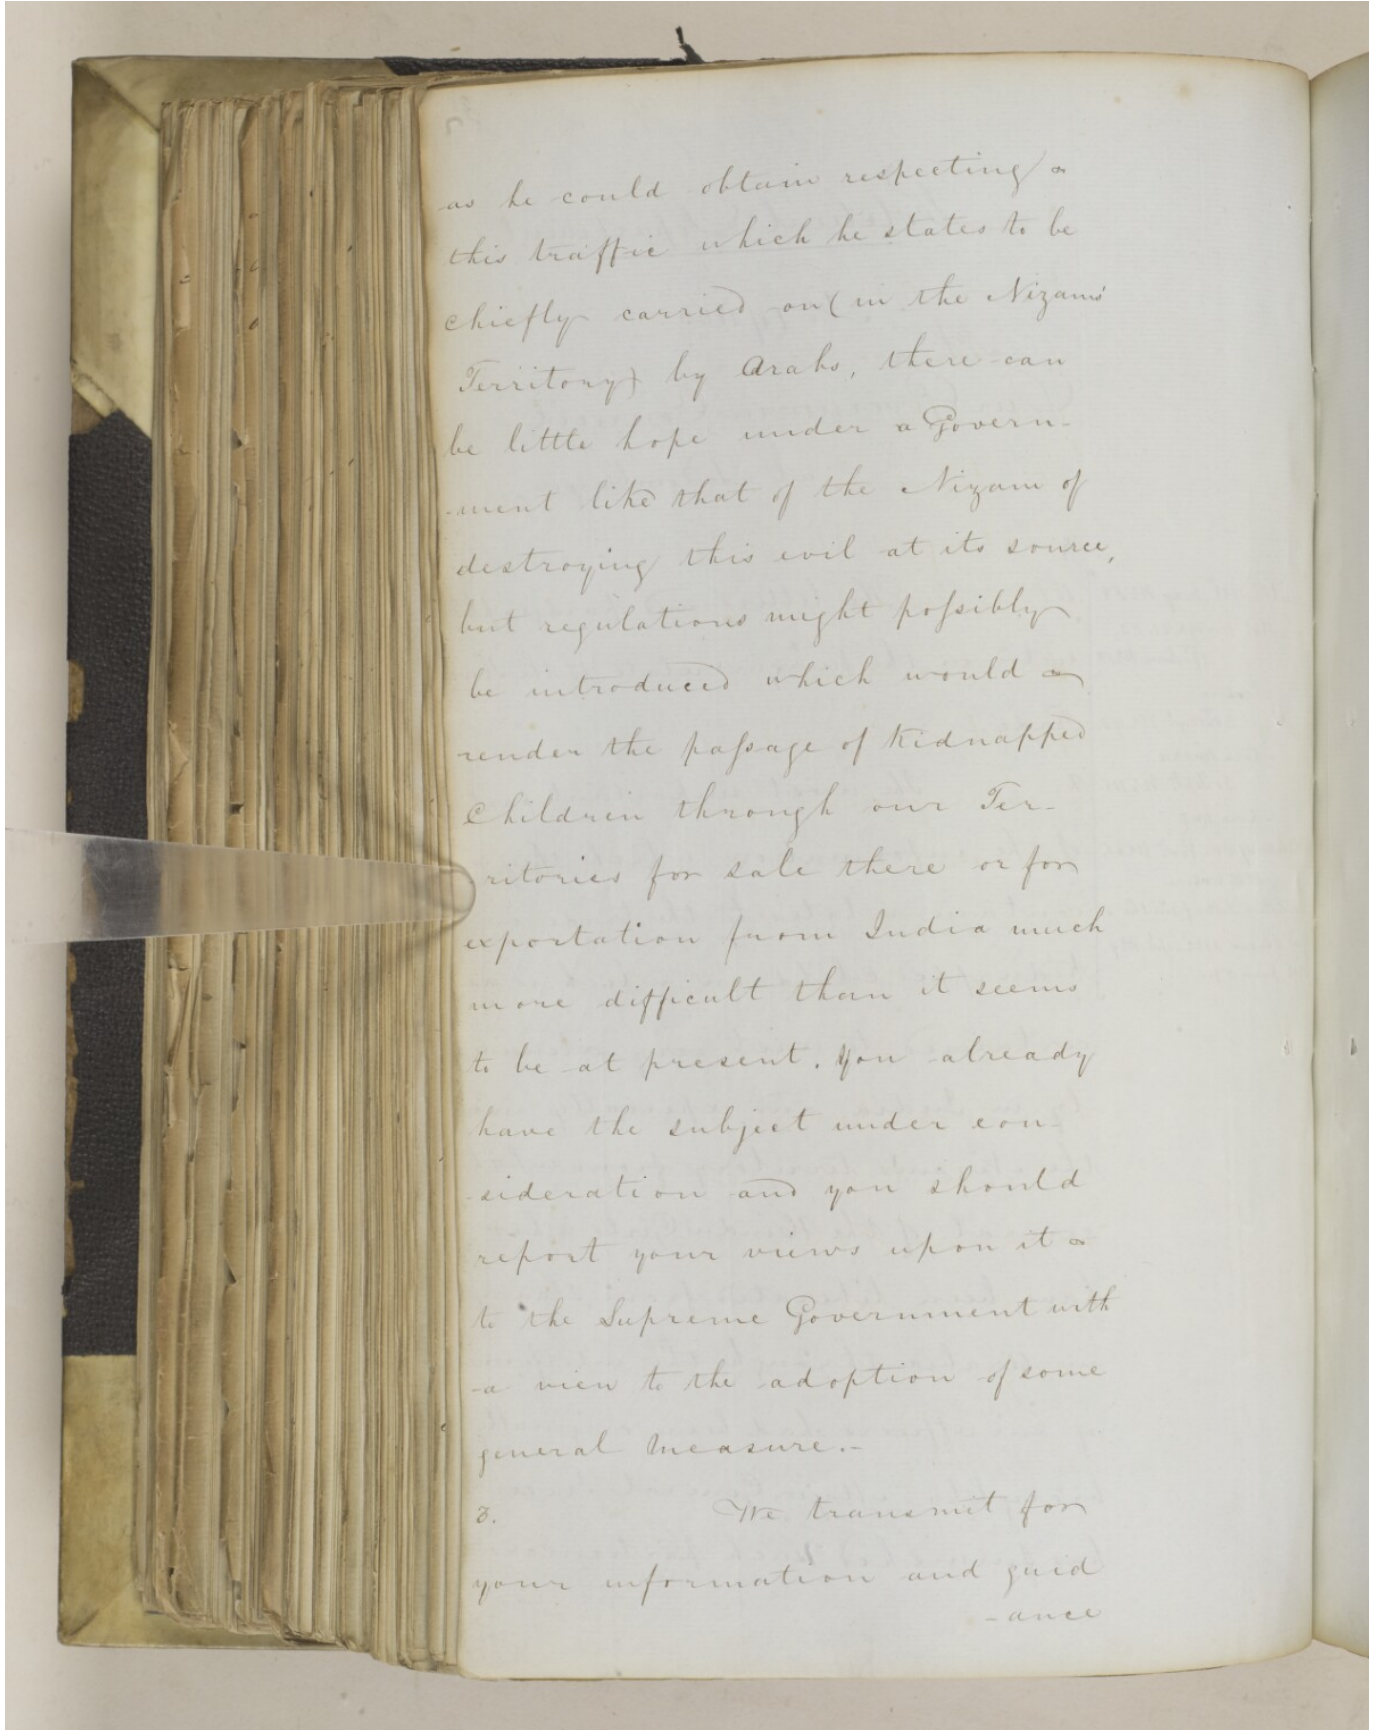 as he could obtain respecting
this traffic which he states to be
chiefly carried on (in the Nizams'
Territory) by Arabs, there can
be little hope under a Govern-
-ment like that of the Nizam of
destroying this evil at its source,
but regulations might possibly
be introduced which would
render the passage of Kidnapped
Children through our Ter-
ritories for sale there or for
exportation from India much
more difficult than it seems
to be at present. You already
have the subject under con-
-sideration and you should
report your views upon it
to the Supreme Government with
a view to the adoption of some
general measure.-
3. We transmit for
your information and guid
-ance